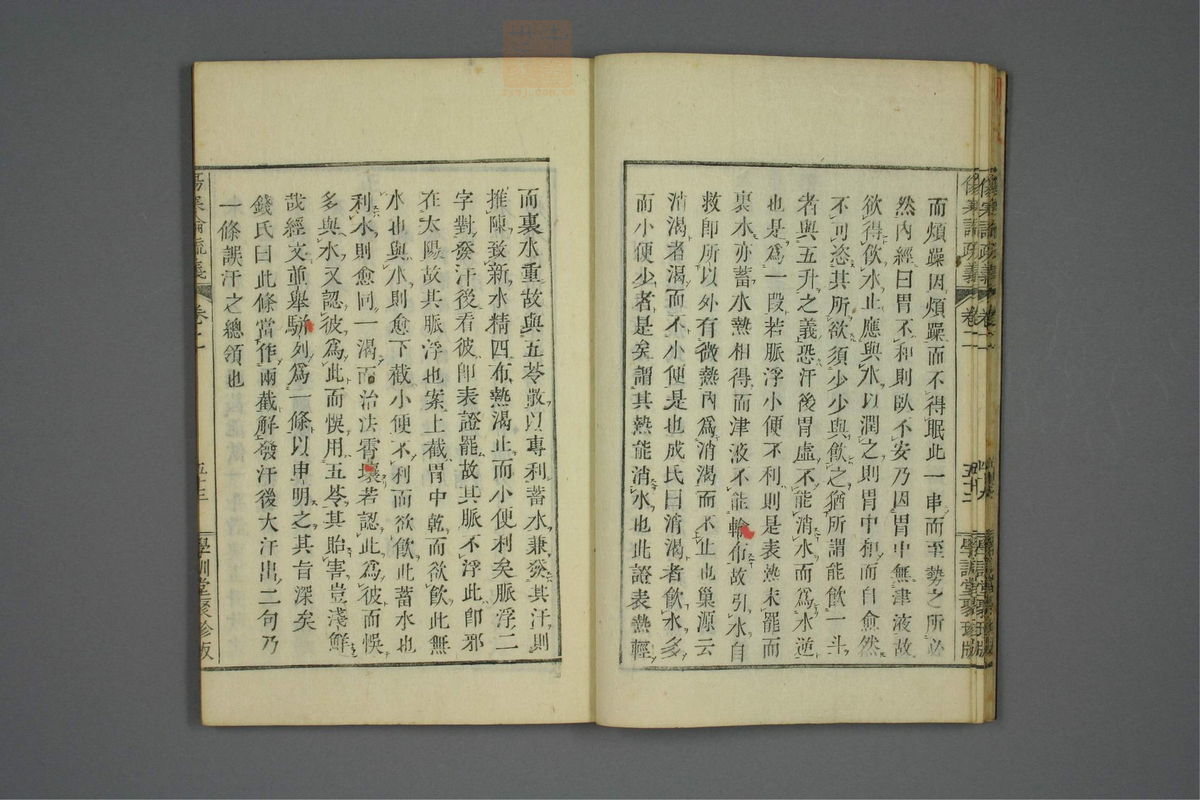 而煩躁因煩躁而不得眠此一串而至勢之所必
然內經曰胃不和則臥不安乃因胃中無津液故
欲得飲水止應與水以潤之則胃中和而自愈然
不可恣其所欲須少少與飲之猶所謂能飲一斗
者與五升之義恐汗後胃虛不能消水而為水逆
也是爲一段若脈浮小便不利則是表熱未罷而
裏水亦蓄水熱相得而津液不能輸布故引水自
救卽所以外有微熱內爲消渴而不止也巢源云
消渴者渴而不小便是也成氏曰消渴者飲水多
而小便少者是矣謂其熱能消水也此證表熱輕
而裏水重故與五苓散以專利蓄水兼發其汗則
推陳致新水精四布熱渴止而小便利矣脈浮二
字對發汗後看彼卽表證罷故其脈不浮此卽邪
在太陽故其脈浮也案上截胃中乾而欲飲此無
水也與水則愈下截小便不利而欲飲此蓄水也
利水則愈同一渴而治法霄壤若認此爲彼而悞
多與水又認彼爲此而悞用五苓其貽害豈淺鮮
哉經文並舉駢列爲一條以申明之其旨深矣
錢氏曰此條當作兩截解發汗後大汗出二句乃
一條誤汗之總領也
傷寒論疏義
卷二
五十三
學訓堂聚珍版